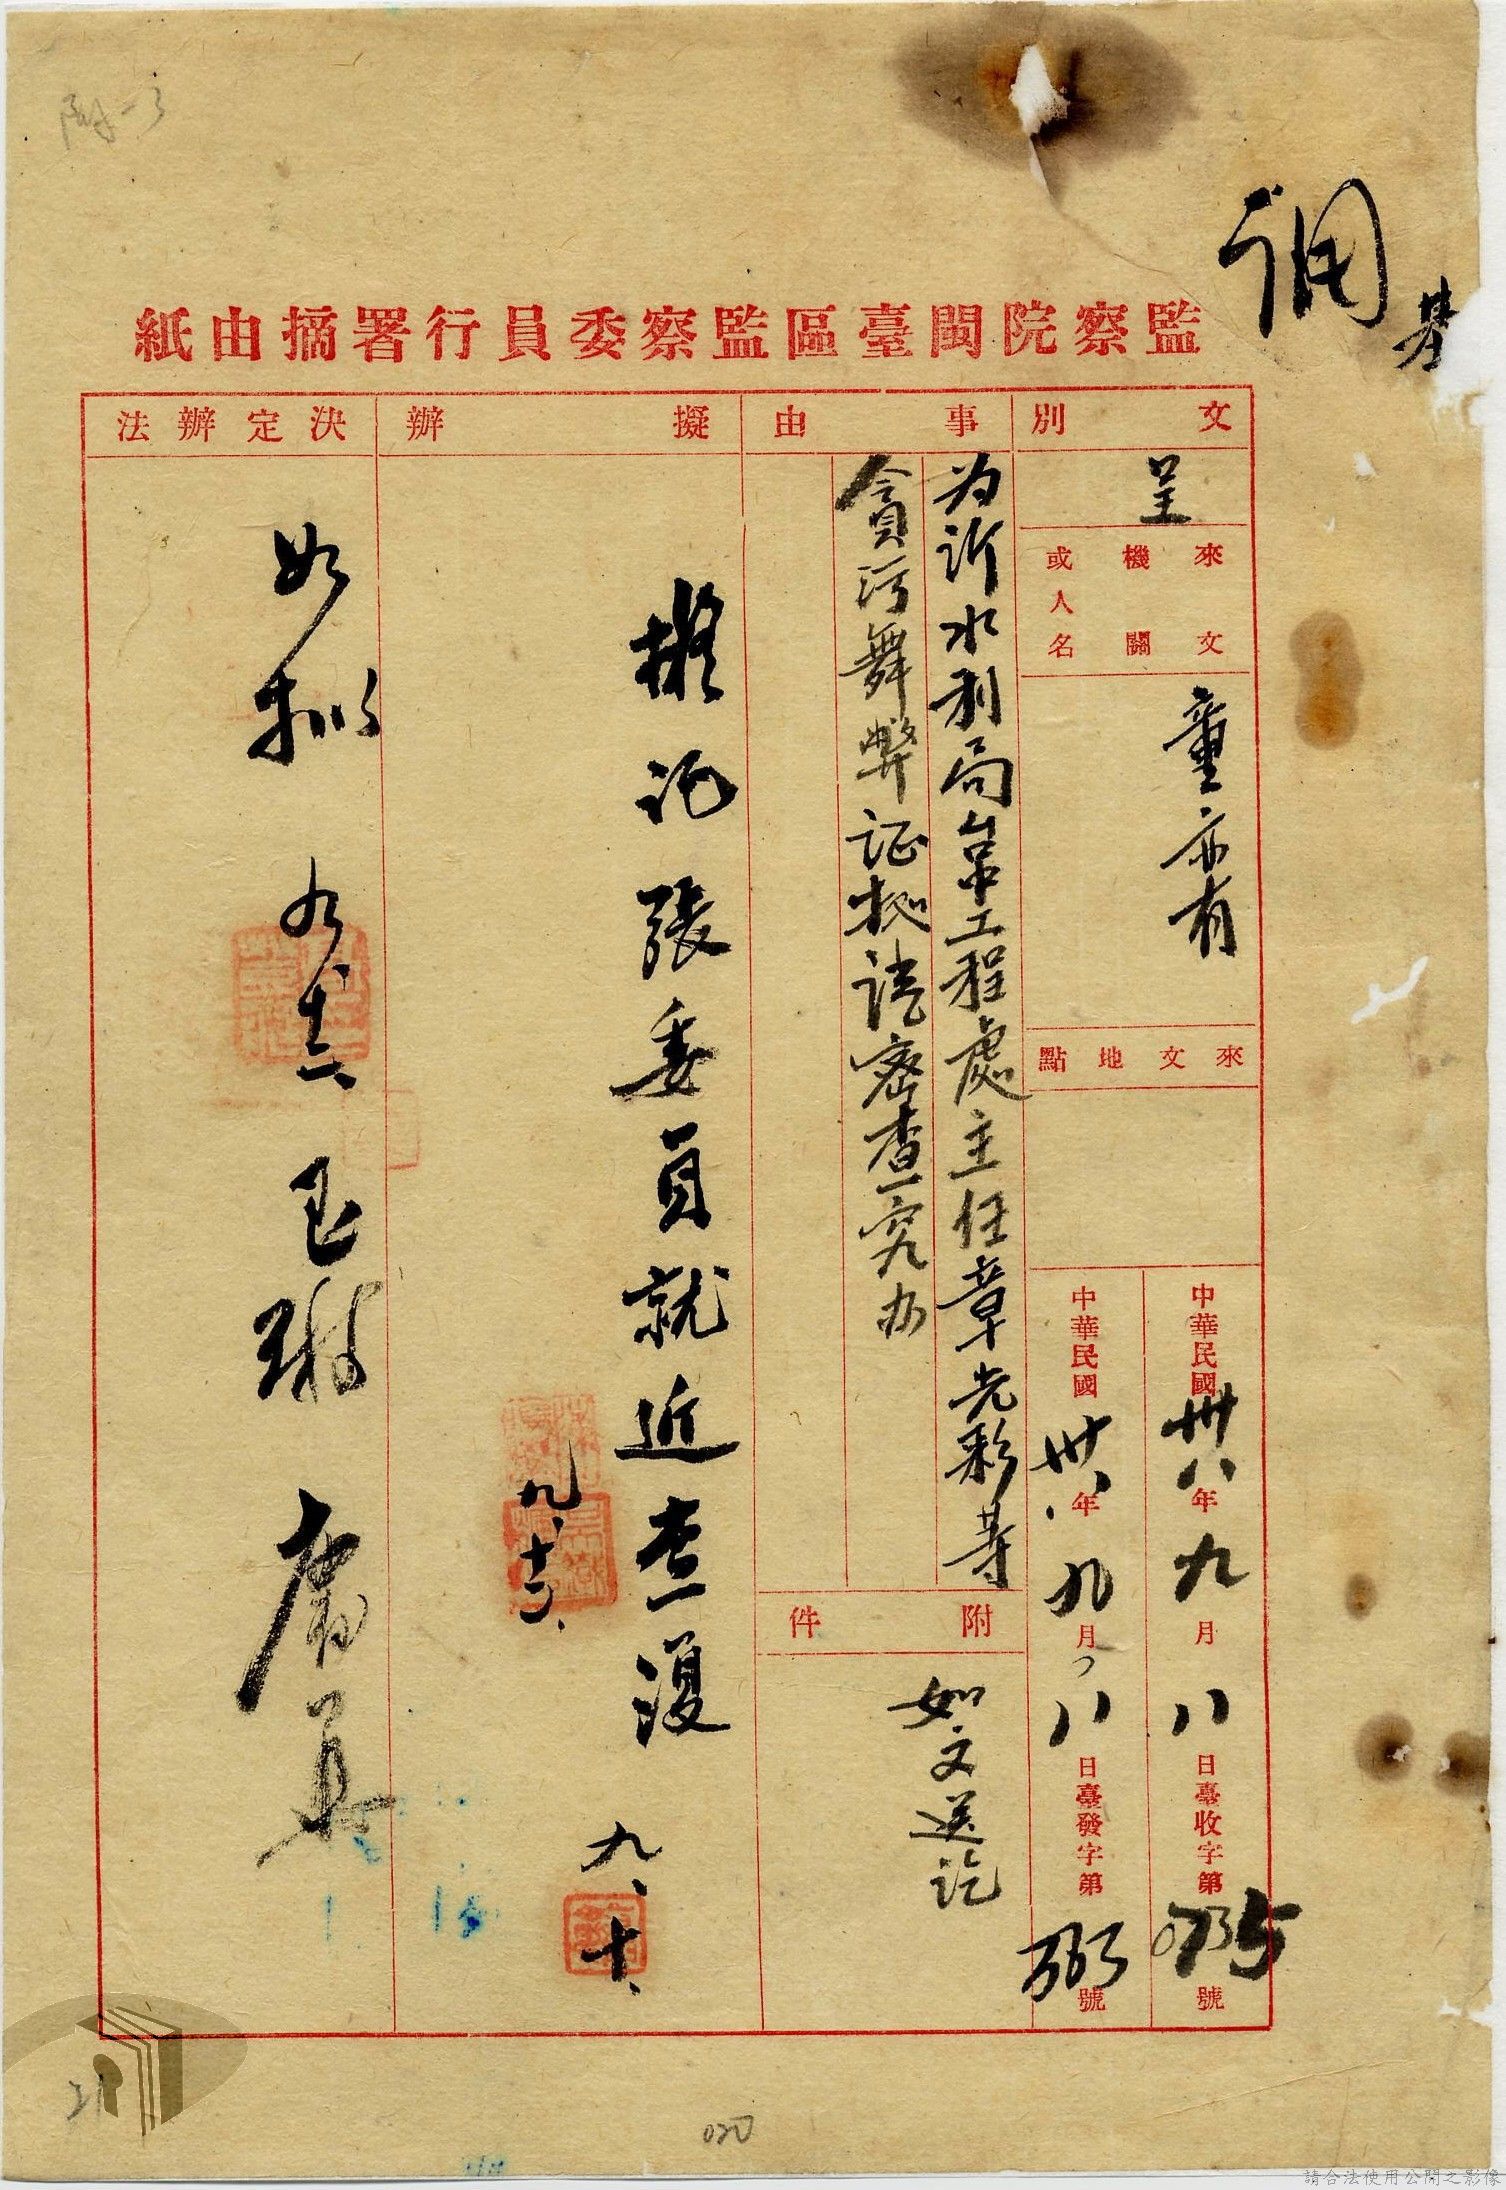 附一3
調
監察院閩臺區監察委員行署摘由紙
文別
呈
來文機關或人名
童亦有
來文地點
中華民國卅八年九月八日臺收字第0735號
中華民國卅八年九月八日臺發字第號
事由
为訴水利局台中工程處主任章光彩等
貪污舞弊证拠請密查究办
附件
如文送訖
擬辦
擬函張委員就近查復
九、十、
九、十二、
決定辦法
如拟
21
020
請合法使用公開之影像